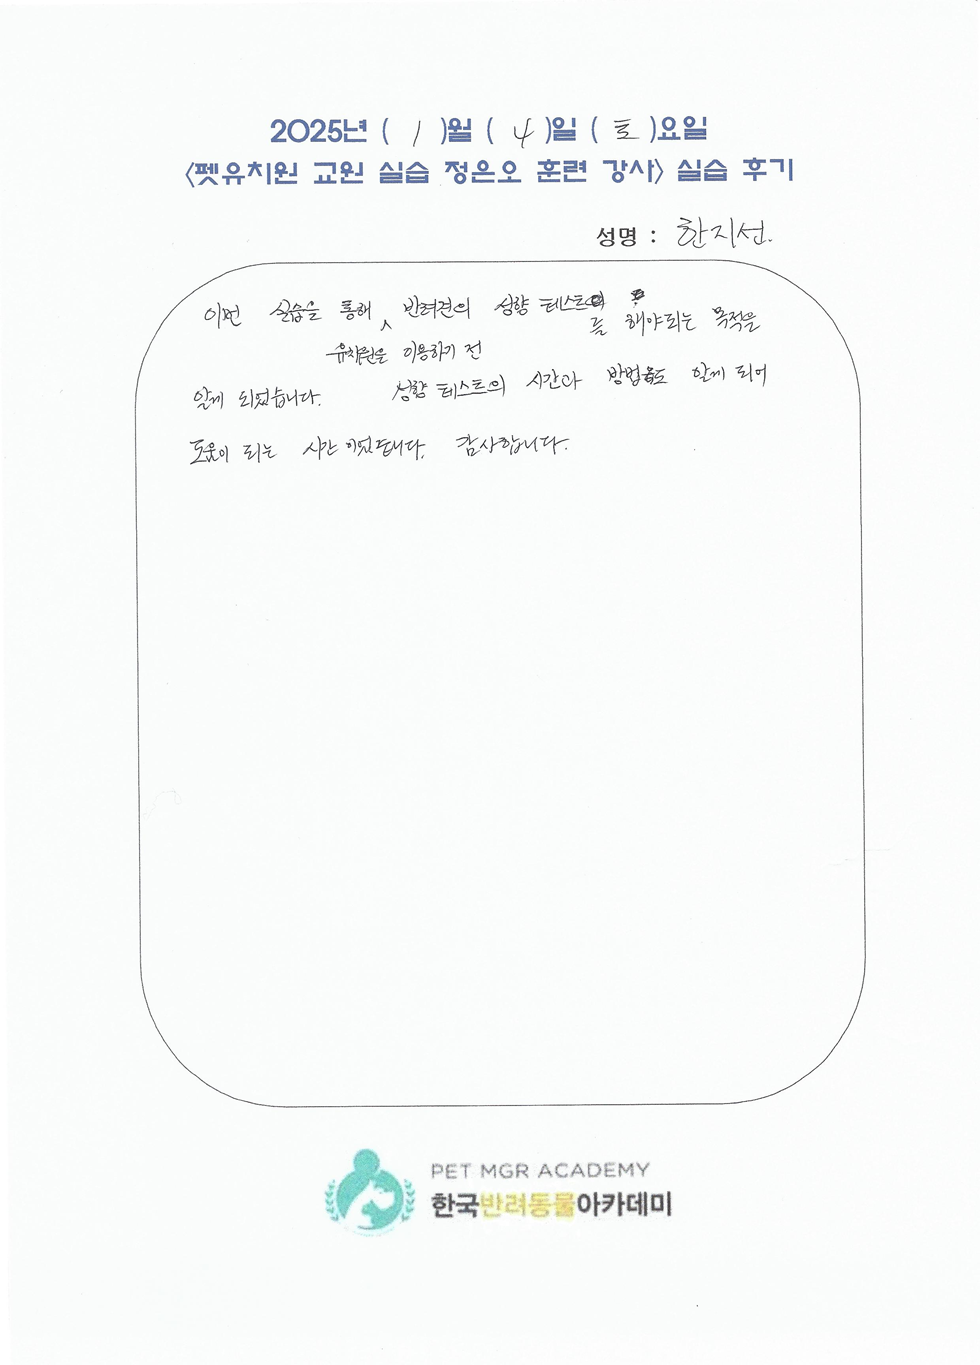 2025년 ( 1 )월 ( 4 )일 ( 토 )요일
<펫유치원 교원 실습 정은오 훈련 강사> 실습 후기
성명 : 한지선.
이번 실습을 통해 ^ 반려견의 성향 테스트를 해야되는 목적을
유치원을 이용하기 전
알게 되었습니다. 성향 테스트의 시간과 방법도 알게 되어
도움이 되는 시간이었습니다. 감사합니다.
PET MGR ACADEMY
한국반려동물아카데미